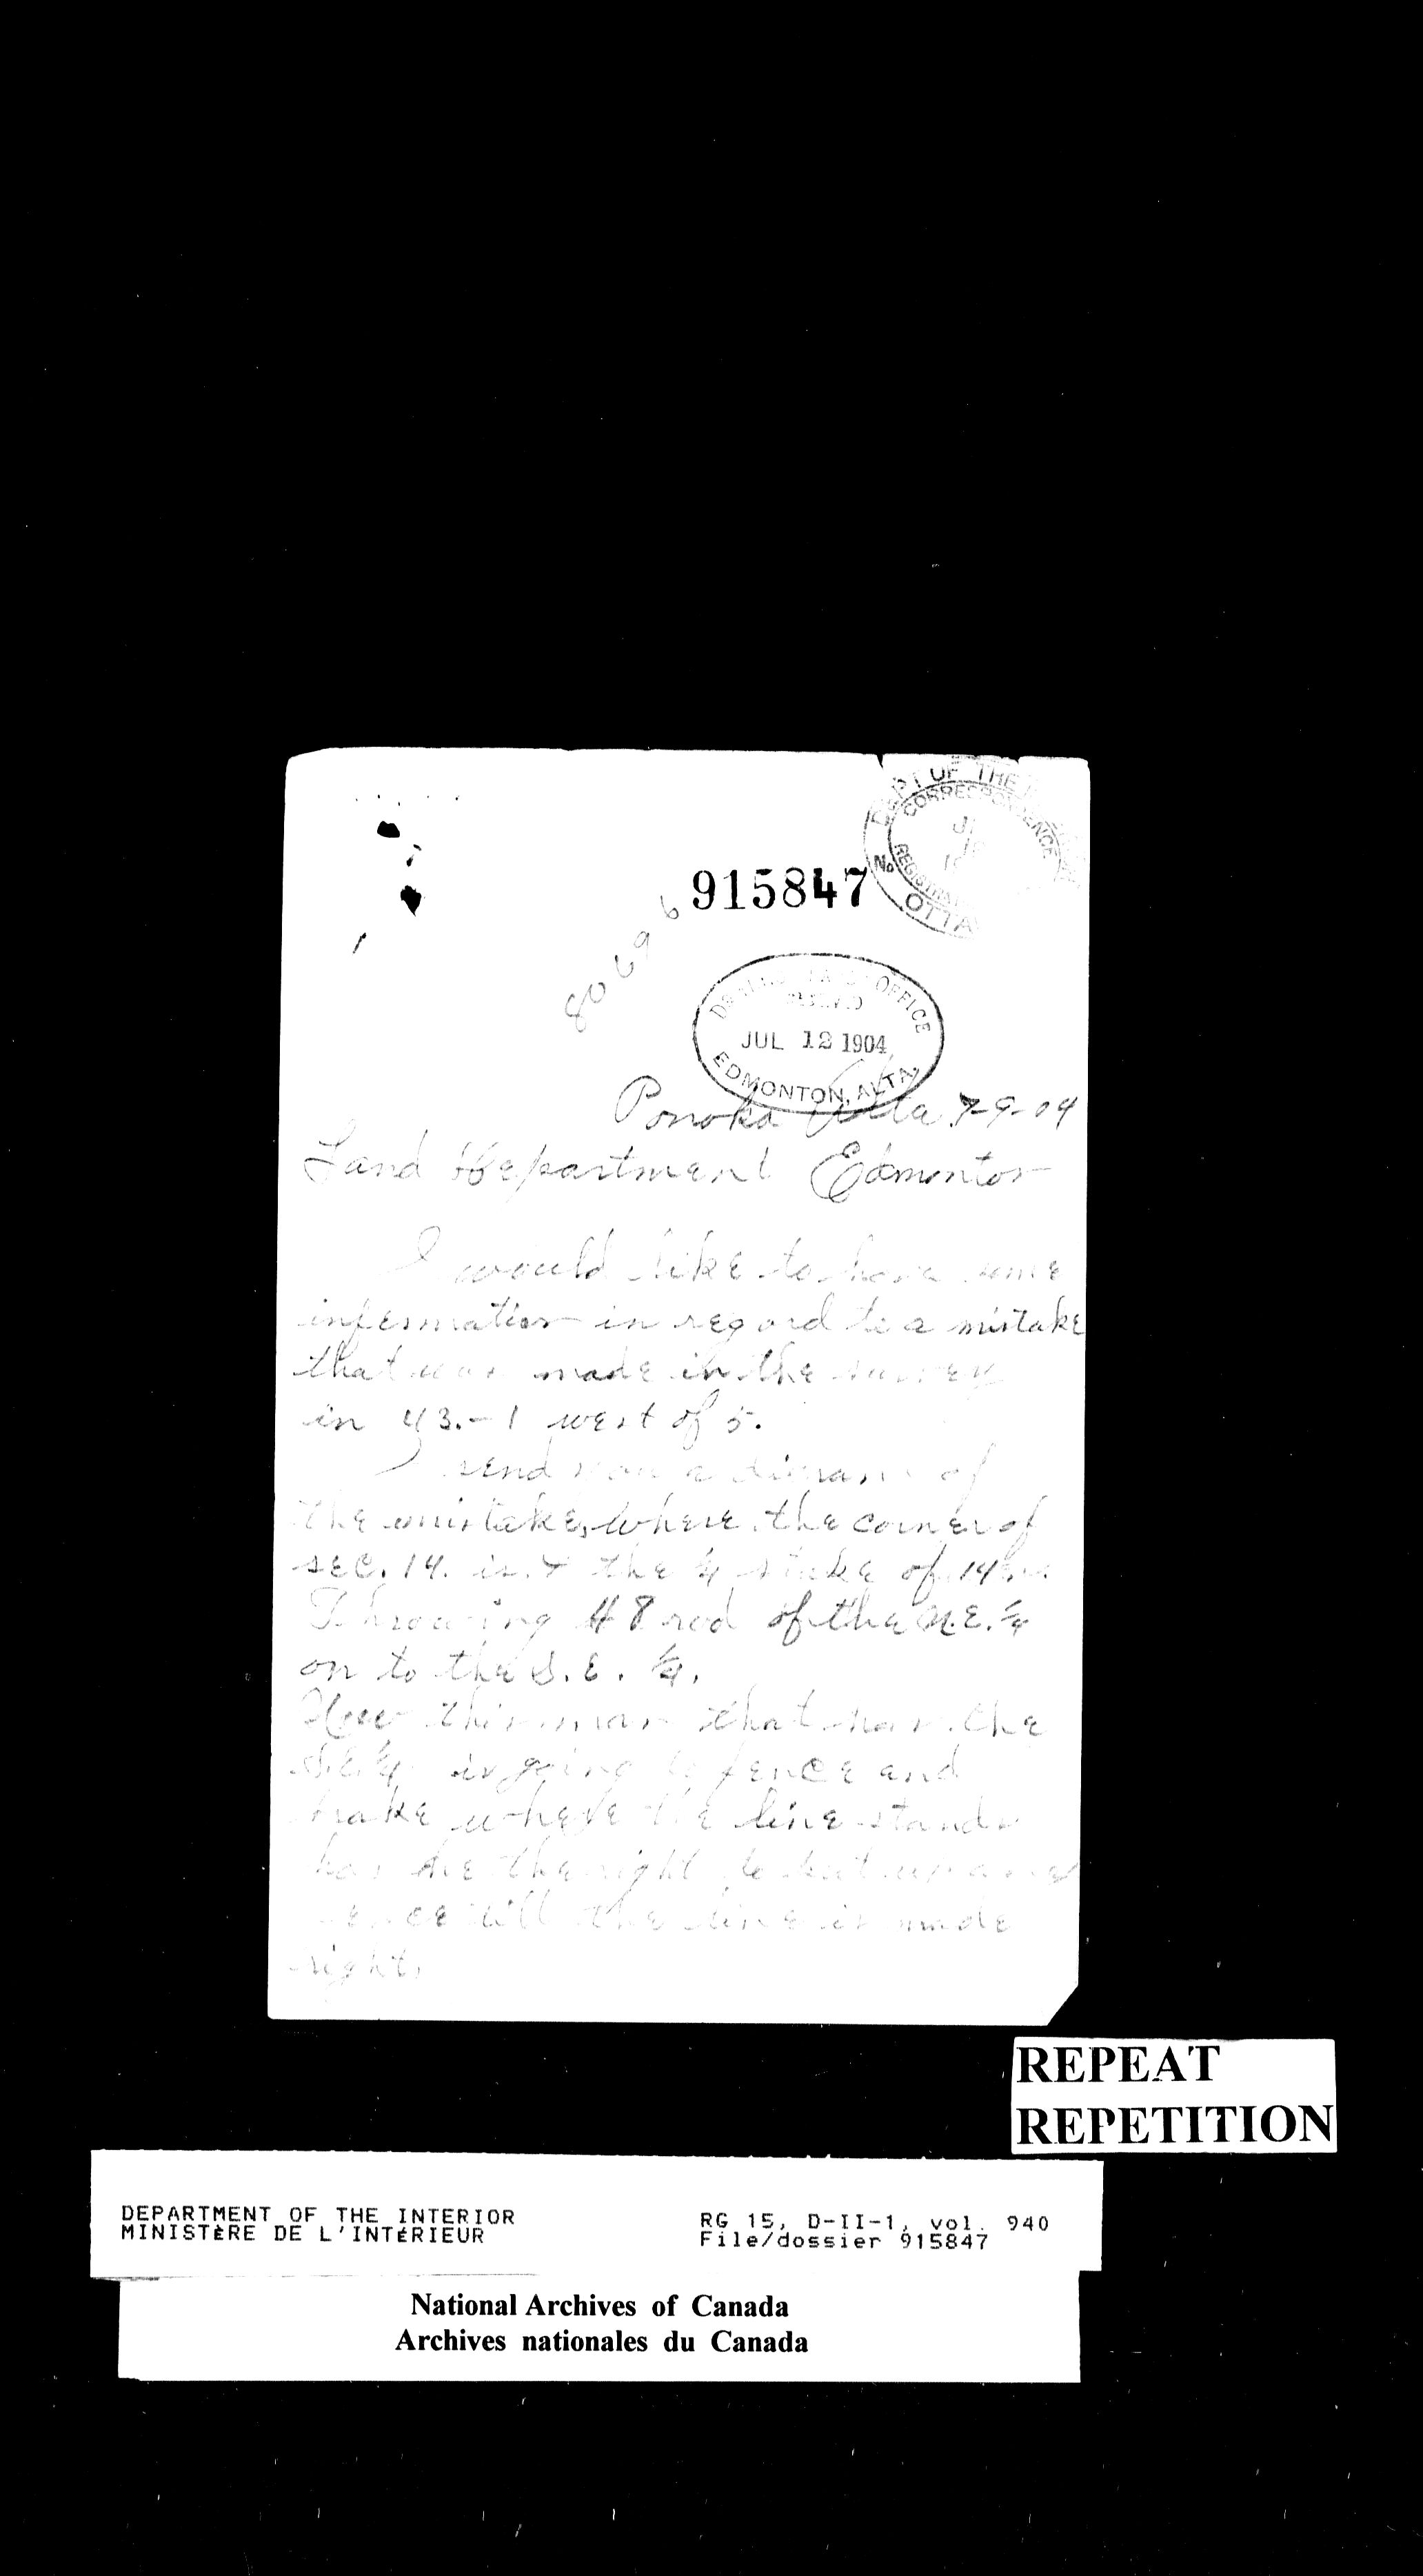 DEPT OF THE
CORRESPONDENCE
No
OTTA
915847
80696
OFFICE
JUL 12 1904
EDMONTON, ALTA.
Ponoka Alta 7-9-04
Land Department Edmonton
I would like to have some
information in regard to a mistake
that was made in the survey
in 43.-1 west of 5.
I send you a digram of
the mistake, where the corner of
sec. 14. is. & the 1/4 stake of 14 is
Throwing 48 rod of the N.E. 1/4
on to the S.E. 1/4.
Now this man that has the
S.E. 1/4 is going to fence and
brake where the line stands
has he the right to put up a
fence till the line is made
right.
REPEAT
REPETITION
DEPARTMENT OF THE INTERIOR
MINISTÈRE DE L'INTÉRIEUR
RG 15, D-II-1, vol. 940
File/dossier 915847
National Archives of Canada
Archives nationales du Canada